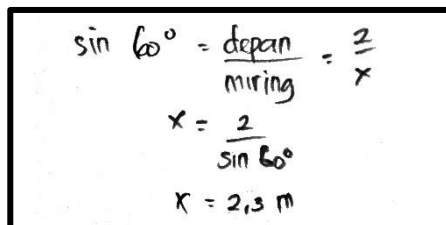 sin 60° = depan/miring = 2/x
x = 2/sin 60°
x = 2,3 m